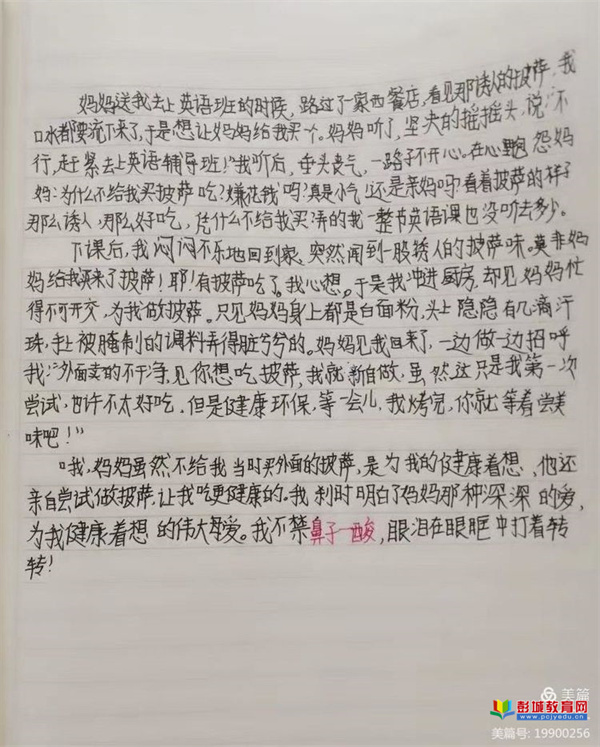 妈妈送我去上英语班的时候，路过了一家西餐店，看见那诱人的披萨，我
口水都要流下来了，于是想让妈妈给我买个。妈妈听了，坚决的摇摇头，说：“不
行，赶紧去上英语辅导班！”我听后，垂头丧气，一路子不开心。在心里抱怨妈
妈：为什么不给我买披萨吃？嫌花钱吗？真是小气！还是亲妈吗？看着披萨的样子
那么诱人，那么好吃，凭什么不给我买，弄的我一整节英语课也没听去多少。
下课后，我闷闷不乐地回到家，突然闻到一股诱人的披萨味。莫非妈
妈给我买来了披萨！耶！有披萨吃了。我心想。于是我冲进厨房，却见妈妈忙
得不可开交，为我做披萨。只见妈妈身上都是白面粉，头上隐隐有几滴汗
珠，手上被腌制的调料弄得脏兮兮的。妈妈见我回来了，一边做一边招呼
我：“外面卖的不干净，见你想吃披萨，我就新自做，虽然这只是我第一次
尝试，也许不太好吃，但是健康环保，等一会儿，我烤完，你就等着尝美
味吧！”
哦，妈妈虽然不给我当时买外面的披萨，是为我的健康着想，他还
亲自尝试做披萨，让我吃更健康的。我利时明白了妈妈那种深深的爱，
为我健康着想的伟大母爱。我不禁鼻子一酸，眼泪在眼眶中打着转
转！
美篇
彭城教育网
www.pcjyedu.cn
美篇号：19900256